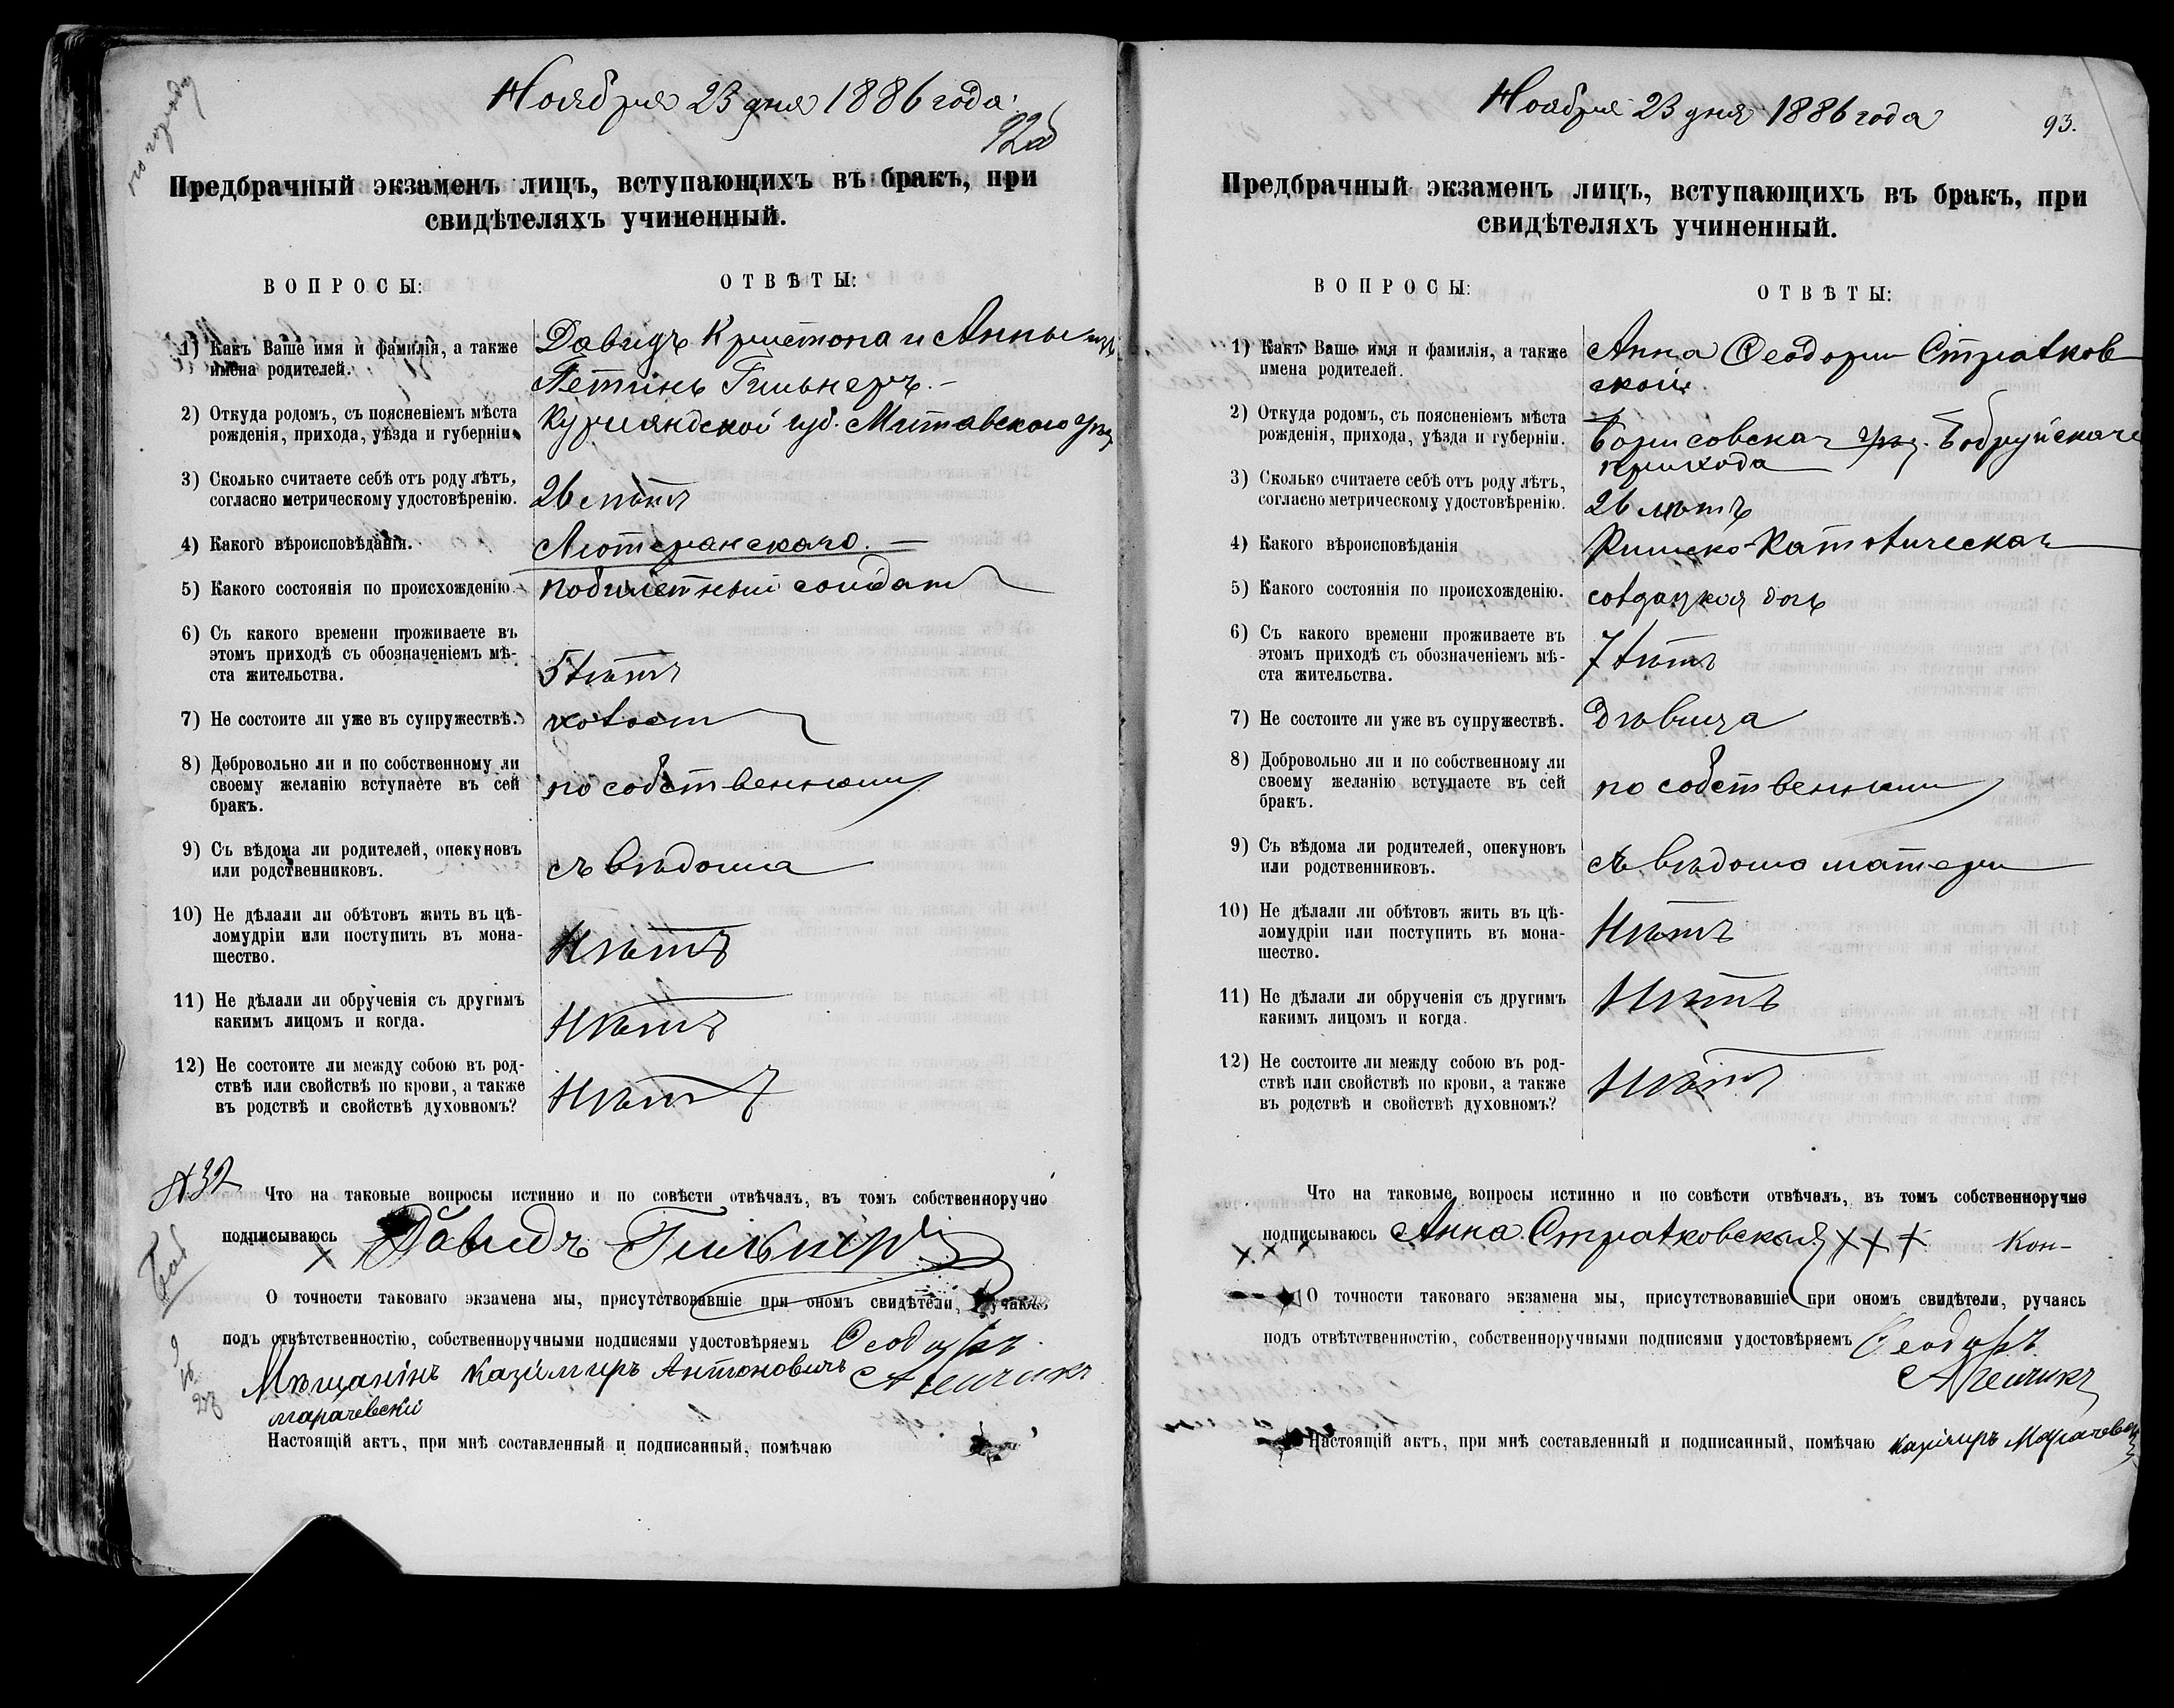 Ноября 23 дня 1886 года
92об
Предбрачный экзаменъ лицъ, вступающихъ въ бракъ, при
свидѣтеляхъ учиненный.
ВОПРОСЫ:
ОТВѢТЫ:
1) Какъ Ваше имя и фамилія, а также
имена родителей.
Давидъ Кристопа и Анны изъ
Гильнеръ.
2) Откуда родомъ, съ поясненіемъ мѣста
рожденія, прихода, уѣзда и губерніи.
Курляндской губ. Митавского уѣз
3) Сколько считаете себѣ отъ роду лѣтъ,
согласно метрическому удостовѣренію.
26 лѣтъ
4) Какого вѣроисповѣданія.
Лютеранскаго.
5) Какого состоянія по происхожденію.
побилетный солдатъ
6) Съ какого времени проживаете въ
этомъ приходѣ съ обозначеніемъ мѣ-
ста жительства.
5 лѣтъ
7) Не состоите ли уже въ супружествѣ.
холостъ
8) Добровольно ли и по собственному ли
своему желанію вступаете въ сей
бракъ.
по собственному
9) Съ вѣдома ли родителей, опекуновъ
или родственниковъ.
съ вѣдома
10) Не дѣлали ли обѣтовъ жить въ цѣ-
ломудріи или поступить въ мона-
шество.
Нѣтъ
11) Не дѣлали ли обрученія съ другимъ
какимъ лицомъ и когда.
Нѣтъ
12) Не состоите ли между собою въ род-
ствѣ или свойствѣ по крови, а также
въ родствѣ и свойствѣ духовномъ?
Нѣтъ
Что на таковые вопросы истинно и по совѣсти отвѣчалъ, въ томъ собственноручно
подписываюсь Давидъ Гильнеръ
О точности таковаго экзамена мы, присутствовавшіе при ономъ свидѣтели, ручаясь
подъ отвѣтственностію, собственноручными подписями удостовѣряемъ Ѳеодоръ
Мѣщанінъ Казіміръ Антоновичъ
Марачевскій
Настоящій актъ, при мнѣ составленный и подписанный, помѣчаю
Ноября 23 дня 1886 года
93.
Предбрачный экзаменъ лицъ, вступающихъ въ бракъ, при
свидѣтеляхъ учиненный.
ВОПРОСЫ:
ОТВѢТЫ:
1) Какъ Ваше имя и фамилія, а также
имена родителей.
Анна Ѳеодоры Стралков
ской
2) Откуда родомъ, съ поясненіемъ мѣста
рожденія, прихода, уѣзда и губерніи.
Борисовская уѣз. Бобруйскаго
прихода
3) Сколько считаете себѣ отъ роду лѣтъ,
согласно метрическому удостовѣренію.
26 лѣтъ
4) Какого вѣроисповѣданія
Римско-Католическая
5) Какого состоянія по происхожденію.
солдацкая дочь
6) Съ какого времени проживаете въ
этомъ приходѣ съ обозначеніемъ мѣ-
ста жительства.
7 лѣтъ
7) Не состоите ли уже въ супружествѣ.
Дѣвица
8) Добровольно ли и по собственному ли
своему желанію вступаете въ сей
бракъ.
по собственному
9) Съ вѣдома ли родителей, опекуновъ
или родственниковъ.
съ вѣдома матери
10) Не дѣлали ли обѣтовъ жить въ цѣ-
ломудріи или поступить въ мона-
шество.
Нѣтъ
11) Не дѣлали ли обрученія съ другимъ
какимъ лицомъ и когда.
Нѣтъ
12) Не состоите ли между собою въ род-
ствѣ или свойствѣ по крови, а также
въ родствѣ и свойствѣ духовномъ?
Нѣтъ
Что на таковые вопросы истинно и по совѣсти отвѣчалъ, въ томъ собственноручно
подписываюсь Анна Стралковская ххх
О точности таковаго экзамена мы, присутствовавшіе при ономъ свидѣтели, ручаясь
подъ отвѣтственностію, собственноручными подписями удостовѣряемъ Ѳеодоръ
Настоящій актъ, при мнѣ составленный и подписанный, помѣчаю Казіміръ Марачевскій